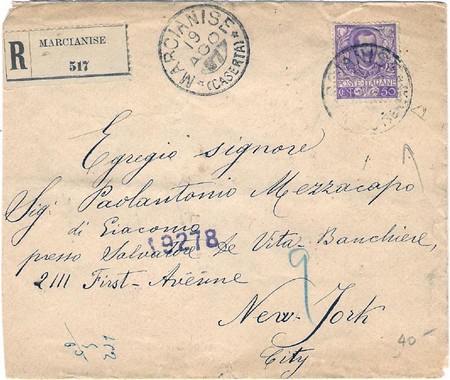 R MARCIANISE
517
MARCIANISE
19
AGO
(CASERTA)
POSTE ITALIANE
50
Egregio signore
Sig. Paolantonio Mezzacapo
di Giacomo
presso Salvatore De Vita-Banchiere,
19278
2111 First-Avenne
New-York
City
9
40-